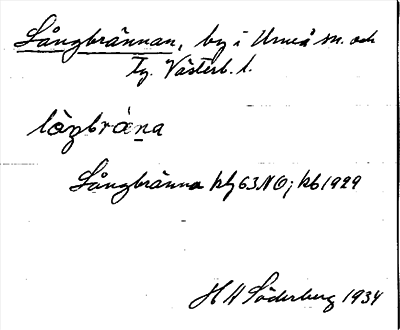 Långbrännan, by i Umeå sn. och
tg. Västerb. l.
lågbräna
Långbränna klj 63 NO; kb 1929
H H Söderberg 1934